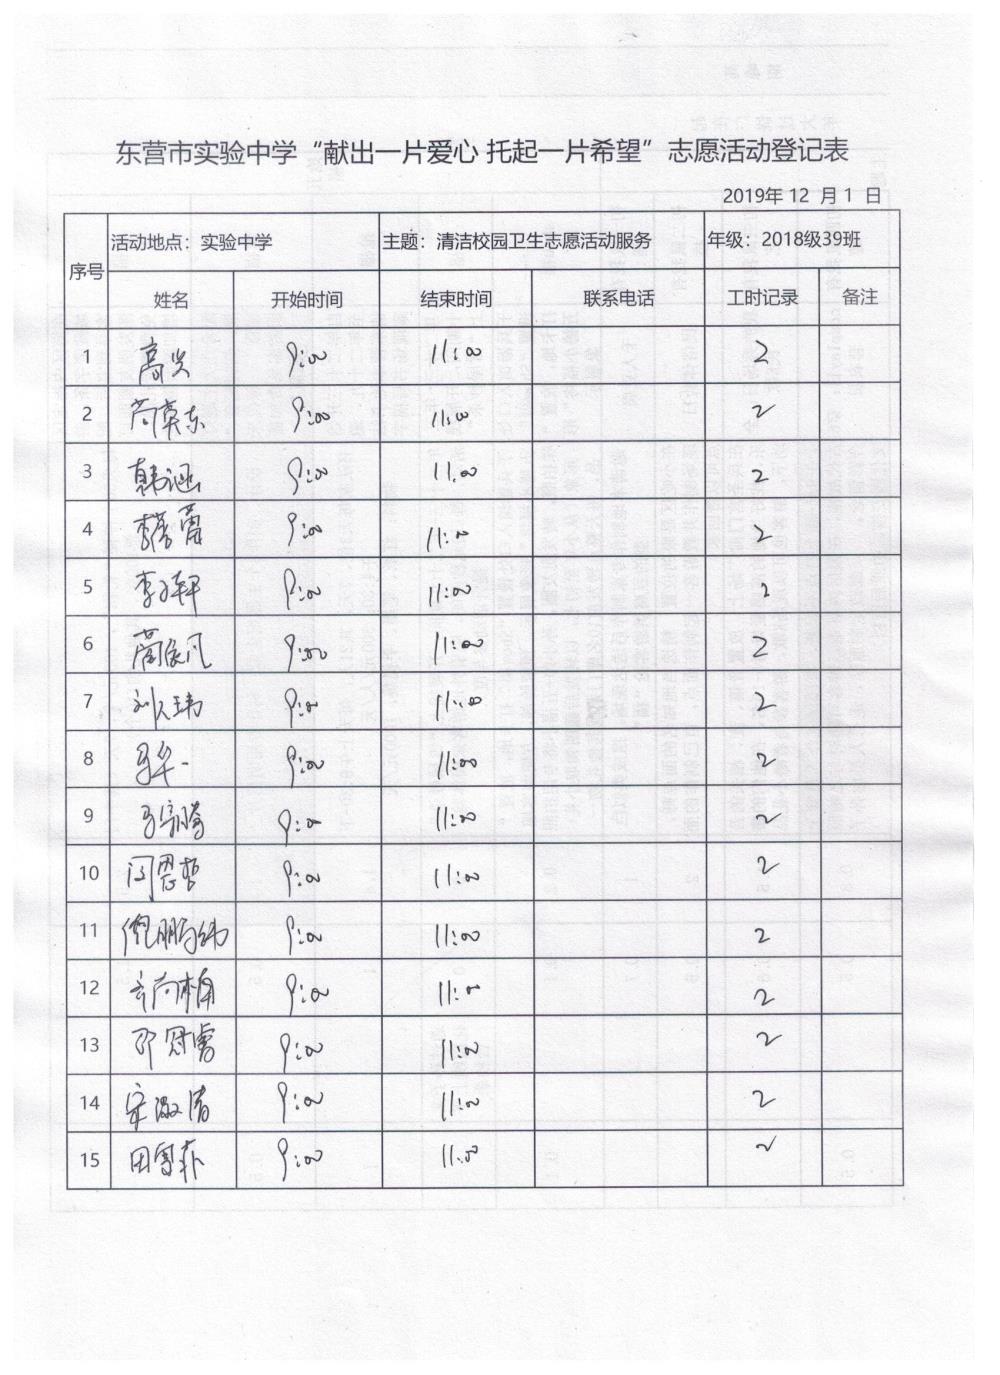 东营市实验中学“献出一片爱心 托起一片希望”志愿活动登记表
2019年 12 月 1 日
序号 活动地点：实验中学 主题：清洁校园卫生志愿活动服务 年级：2018级39班
姓名 开始时间 结束时间 联系电话 工时记录 备注
1 高兴 9:00 11:00 2
2 9:00 11:00 2
3 韩涵 9:00 11:00 2
4 9:00 11:00 2
5 李子轩 9:00 11:00 2
6 9:00 11:00 2
7 9:00 11:00 2
8 9:00 11:00 2
9 9:00 11:00 2
10 闫恩哲 9:00 11:00 2
11 9:00 11:00 2
12 9:00 11:00 2
13 邵冠睿 9:00 11:00 2
14 宋淑清 9:00 11:00 2
15 田雪菲 9:00 11:00 2